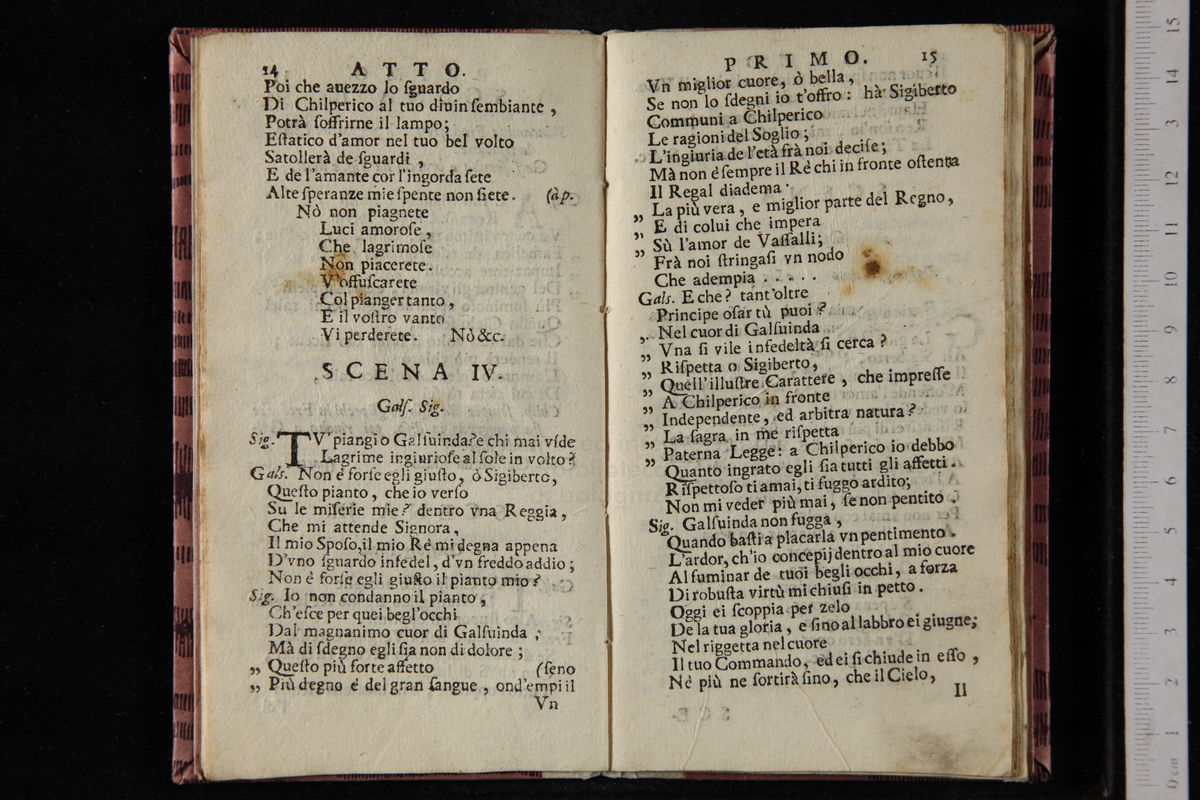 14 ATTO.
Poi che auezzo lo ſguardo
Di Chilperico al tuo diuin ſembiante ,
Potrà ſoffrirne il lampo;
Eſtatico d'amor nel tuo bel volto
Satollerà de ſguardi ,
E de l'amante cor l'ingorda ſete
Alte ſperanze mie ſpente non ſiete. (àp.
Nò non piagnete
Luci amoroſe ,
Che lagrimoſe
Non piacerete.
V'offuſcarete
Col pianger tanto ,
E il voſtro vanto
Vi perderete. Nò &c.
SCENA IV.
Galſ. Sig.
Sig. TV' piangi o Galſuinda? e chi mai vide
Lagrime ingiurioſe al ſole in volto?
Gals. Non é forſe egli giuſto, ò Sigiberto,
Queſto pianto, che io verſo
Su le miſerie mie? dentro vna Reggia,
Che mi attende Signora,
Il mio Spoſo, il mio Rè mi degna appena
D'vno ſguardo infedel, d'vn freddo addio;
Non è forſe egli giuſto il pianto mio?
Sig. Io non condanno il pianto,
Ch'eſce per quei begl'occhi
Dal magnanimo cuor di Galſuinda ;
Mà di ſdegno egli ſia non di dolore ;
„ Queſto più forte affetto (ſeno
„ Più degno é del gran ſangue , ond'empi il
Vn
PRIMO. 15
Vn miglior cuore, ò bella,
Se non lo ſdegni io t'offro: hà Sigiberto
Communi a Chilperico
Le ragioni del Soglio;
L'ingiuria de l'età frà noi deciſe;
Mà non è ſempre il Rè chi in fronte oſtenta
Il Regal diadema.
„ La più vera, e miglior parte del Regno,
„ E di colui che impera
„ Sù l'amor de Vaſſalli;
Frà noi ſtringaſi vn nodo
Che adempia . . . . .
Gals. E che? tant'oltre
Principe oſar tù puoi?
„ Nel cuor di Galſuinda
„ Vna ſi vile infedeltà ſi cerca?
„ Riſpetta o Sigiberto,
„ Quell'illuſtre Carattere , che impreſſe
„ A Chilperico in fronte
„ Independente, ed arbitra natura?
„ La ſagra in me riſpetta
„ Paterna Legge: a Chilperico io debbo
Quanto ingrato egli ſia tutti gli affetti.
Riſpettoſo ti amai, ti fuggo ardito;
Non mi veder più mai, ſe non pentito.
Sig. Galſuinda non fugga,
Quando baſti a placarla vn pentimento.
L'ardor, ch'io concepij dentro al mio cuore
Al fuminar de tuoi begli occhi, a forza
Di robuſta virtù mi chiuſi in petto.
Oggi ei ſcoppia per zelo
De la tua gloria, e ſino al labbro ei giugne;
Nel riggetta nel cuore
Il tuo Commando, ed ei ſi chiude in eſſo ,
Nè più ne ſortirà ſino, che il Cielo,
Il